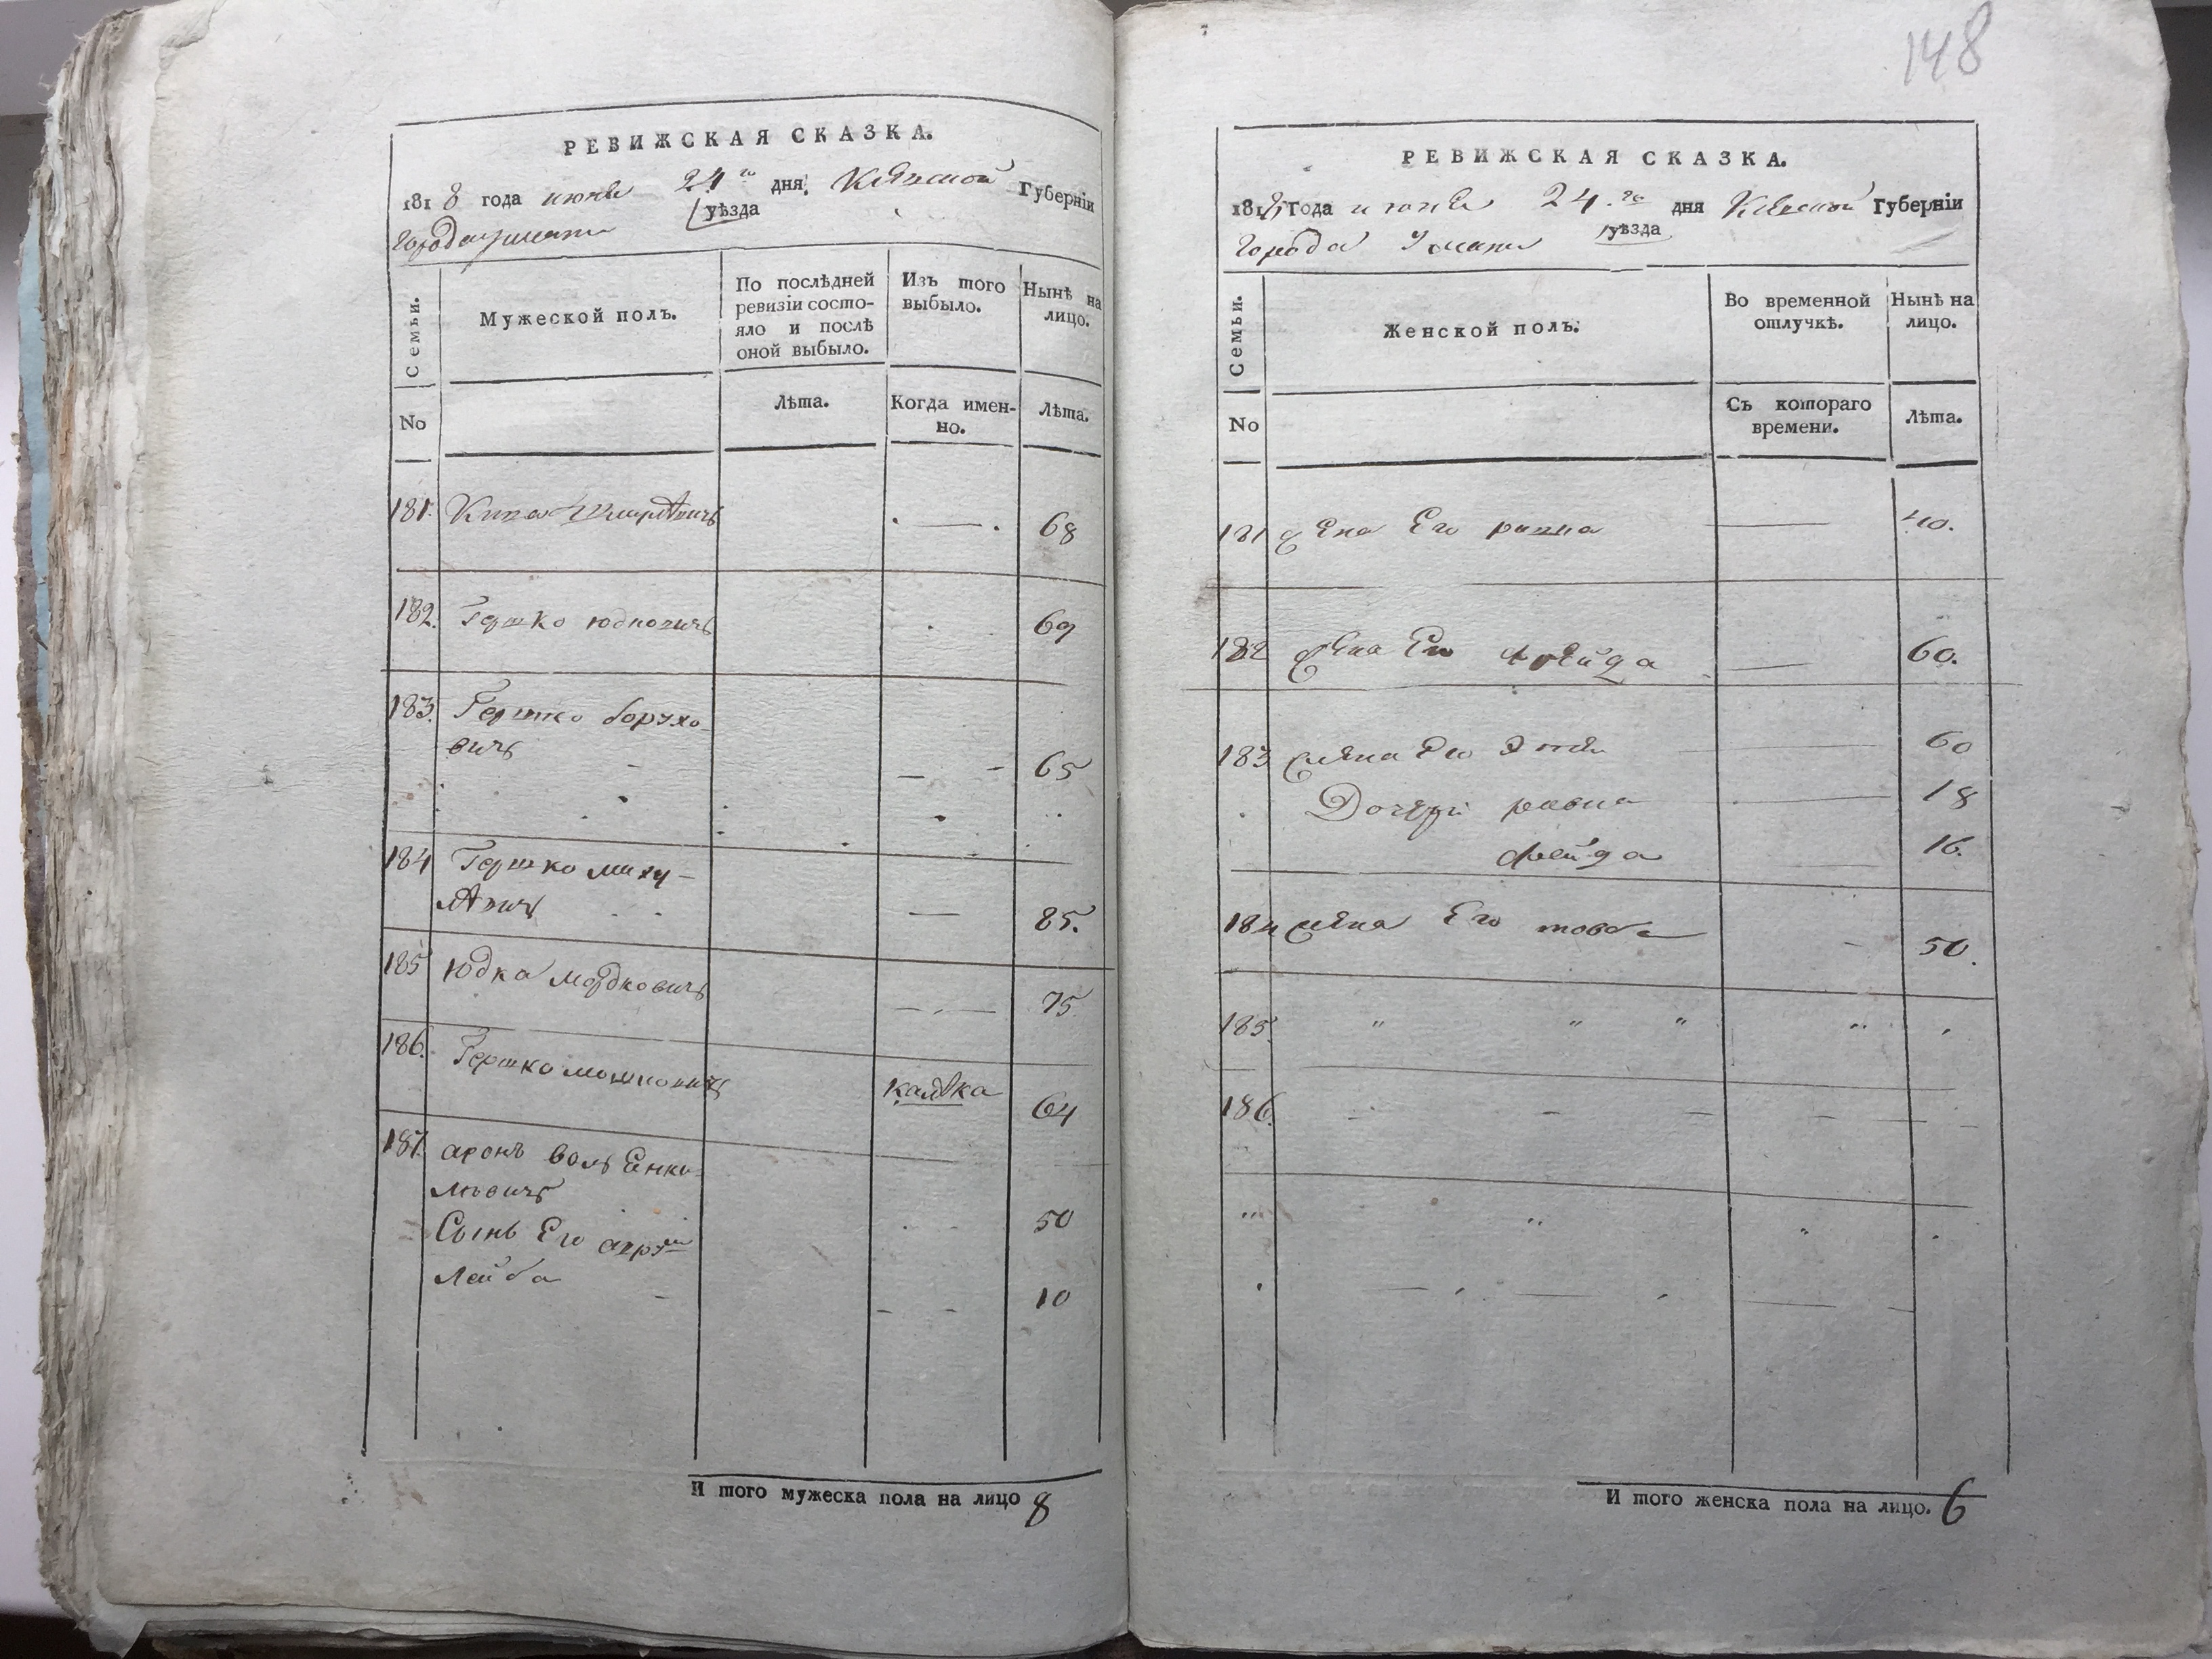 148
РЕВИЖСКАЯ СКАЗКА.
1818 года июня 24го дня Кіевской Губерніи
города Умани уѣзда
Семьи.
Мужеской полъ.
По послѣдней ревизіи состо-
яло и послѣ
оной выбыло.
Изъ того
выбыло.
Нынѣ на
лицо.
No
Лѣта.
Когда имен-
но.
Лѣта.
181. 68
182. Гершко Юдковичъ 69
183. Гершко борухо
вичъ 65
184 Гершко миху-
85.
185 Юдка мордковичъ 75
186. Гершко мошковичъ калѣка 64
187. аронъ волъ
50
Сынъ Его
Лейба 10
И того мужеска пола на лицо 8
РЕВИЖСКАЯ СКАЗКА.
1818 Года июня 24.го дня Кіевской Губерніи
Города Умани уѣзда
Семьи.
Женской полъ.
Во временной
отлучкѣ.
Нынѣ на
лицо.
No
Съ котораго
времени.
Лѣта.
181 жена Его 40.
182 жена Его фрейда 60.
183 жена Его 60
Дочери 18
фейга 16.
184 жена Его товба 50.
185.
186.
И того женска пола на лицо. 6